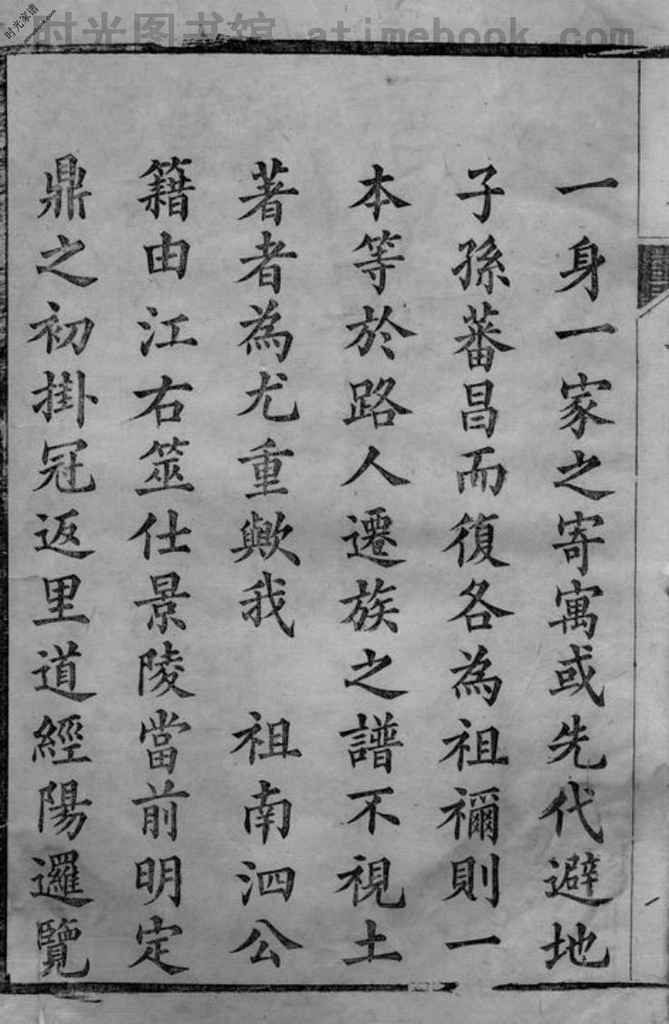 时光家谱
时光图书馆 atimebook.com
一身一家之寄寓或先代避地
子孫蕃昌而復各為祖禰則一
本等於路人遷族之譜不視土
著者為尤重歟我 祖南泗公
籍由江右筮仕景陵當前明定
鼎之初掛冠返里道經陽邏覽